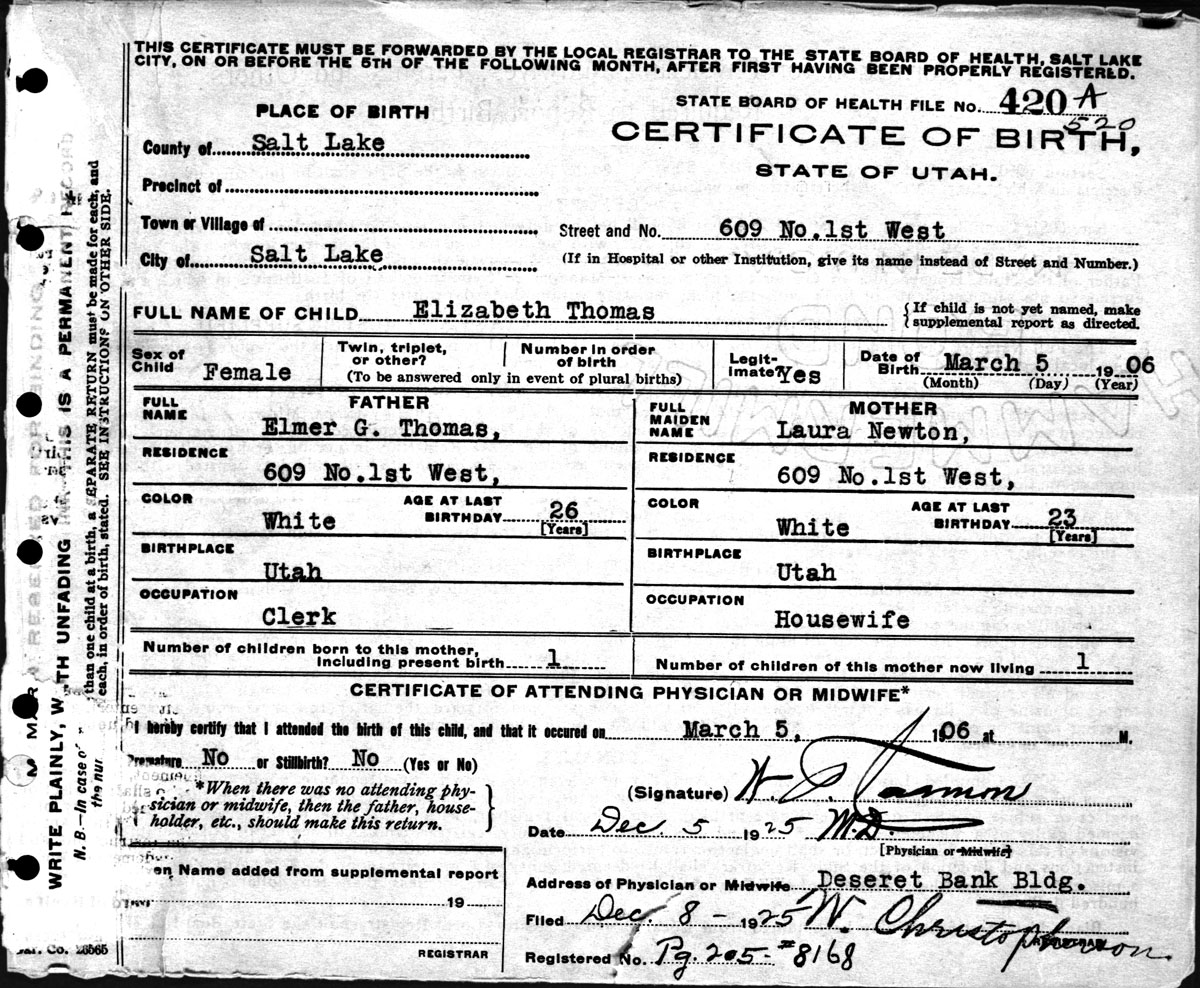 THIS CERTIFICATE MUST BE FORWARDED BY THE LOCAL REGISTRAR TO THE STATE BOARD OF HEALTH, SALT LAKE
CITY, ON OR BEFORE THE 5TH OF THE FOLLOWING MONTH, AFTER FIRST HAVING BEEN PROPERLY REGISTERED.
PLACE OF BIRTH
STATE BOARD OF HEALTH FILE No. 420 A
520
County of Salt Lake
CERTIFICATE OF BIRTH,
STATE OF UTAH.
Precinct of
Town or Village of
Street and No. 609 No.1st West
City of Salt Lake
(If in Hospital or other Institution, give its name instead of Street and Number.)
FULL NAME OF CHILD Elizabeth Thomas
If child is not yet named, make
supplemental report as directed.
Sex of
Child Female
Twin, triplet,
or other?
Number in order
of birth
(To be answered only in event of plural births)
Legit-
imate? Yes
Date of
Birth March 5 1906
(Month) (Day) (Year)
FATHER
FULL
NAME
Elmer G. Thomas,
RESIDENCE
609 No.1st West,
COLOR
White
AGE AT LAST
BIRTHDAY 26
[Years]
BIRTHPLACE
Utah
OCCUPATION
Clerk
MOTHER
FULL
MAIDEN
NAME
Laura Newton,
RESIDENCE
609 No.1st West,
COLOR
White
AGE AT LAST
BIRTHDAY 23
[Years]
BIRTHPLACE
Utah
OCCUPATION
Housewife
Number of children born to this mother,
including present birth 1
Number of children of this mother now living 1
CERTIFICATE OF ATTENDING PHYSICIAN OR MIDWIFE*
I hereby certify that I attended the birth of this child, and that it occured on March 5, 1906 at M.
Premature No or Stillbirth? No (Yes or No)
*When there was no attending phy-
sician or midwife, then the father, house-
holder, etc., should make this return.
(Signature)
Date Dec. 5 1925 M.D.
[Physician or Midwife]
en Name added from supplemental report
19
REGISTRAR
Address of Physician or Midwife Deseret Bank Bldg.
Filed Dec. 8 - 1925 W. Christopherson
REGISTRAR
Registered No. Pg. 205- #8168
Car. Co. 26565
WRITE PLAINLY, WITH UNFADING INK THIS IS A PERMANENT RECORD
N. B.—In case of than one child at a birth, a SEPARATE RETURN must be made for each, and
the nur each, in order of birth, stated. SEE INSTRUCTIONS ON OTHER SIDE.